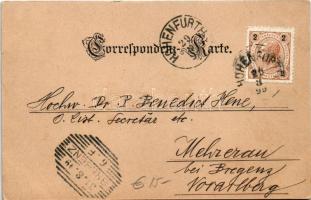 Correspondenz-Karte.
HOHENFURTH
2 2
HOHENFURTH
Hochw. Dr. P. Benedict
O. Cist. Secretär etc.
Mehrerau
bei Bregenz
Voralberg
BREGENZ
€ 15-